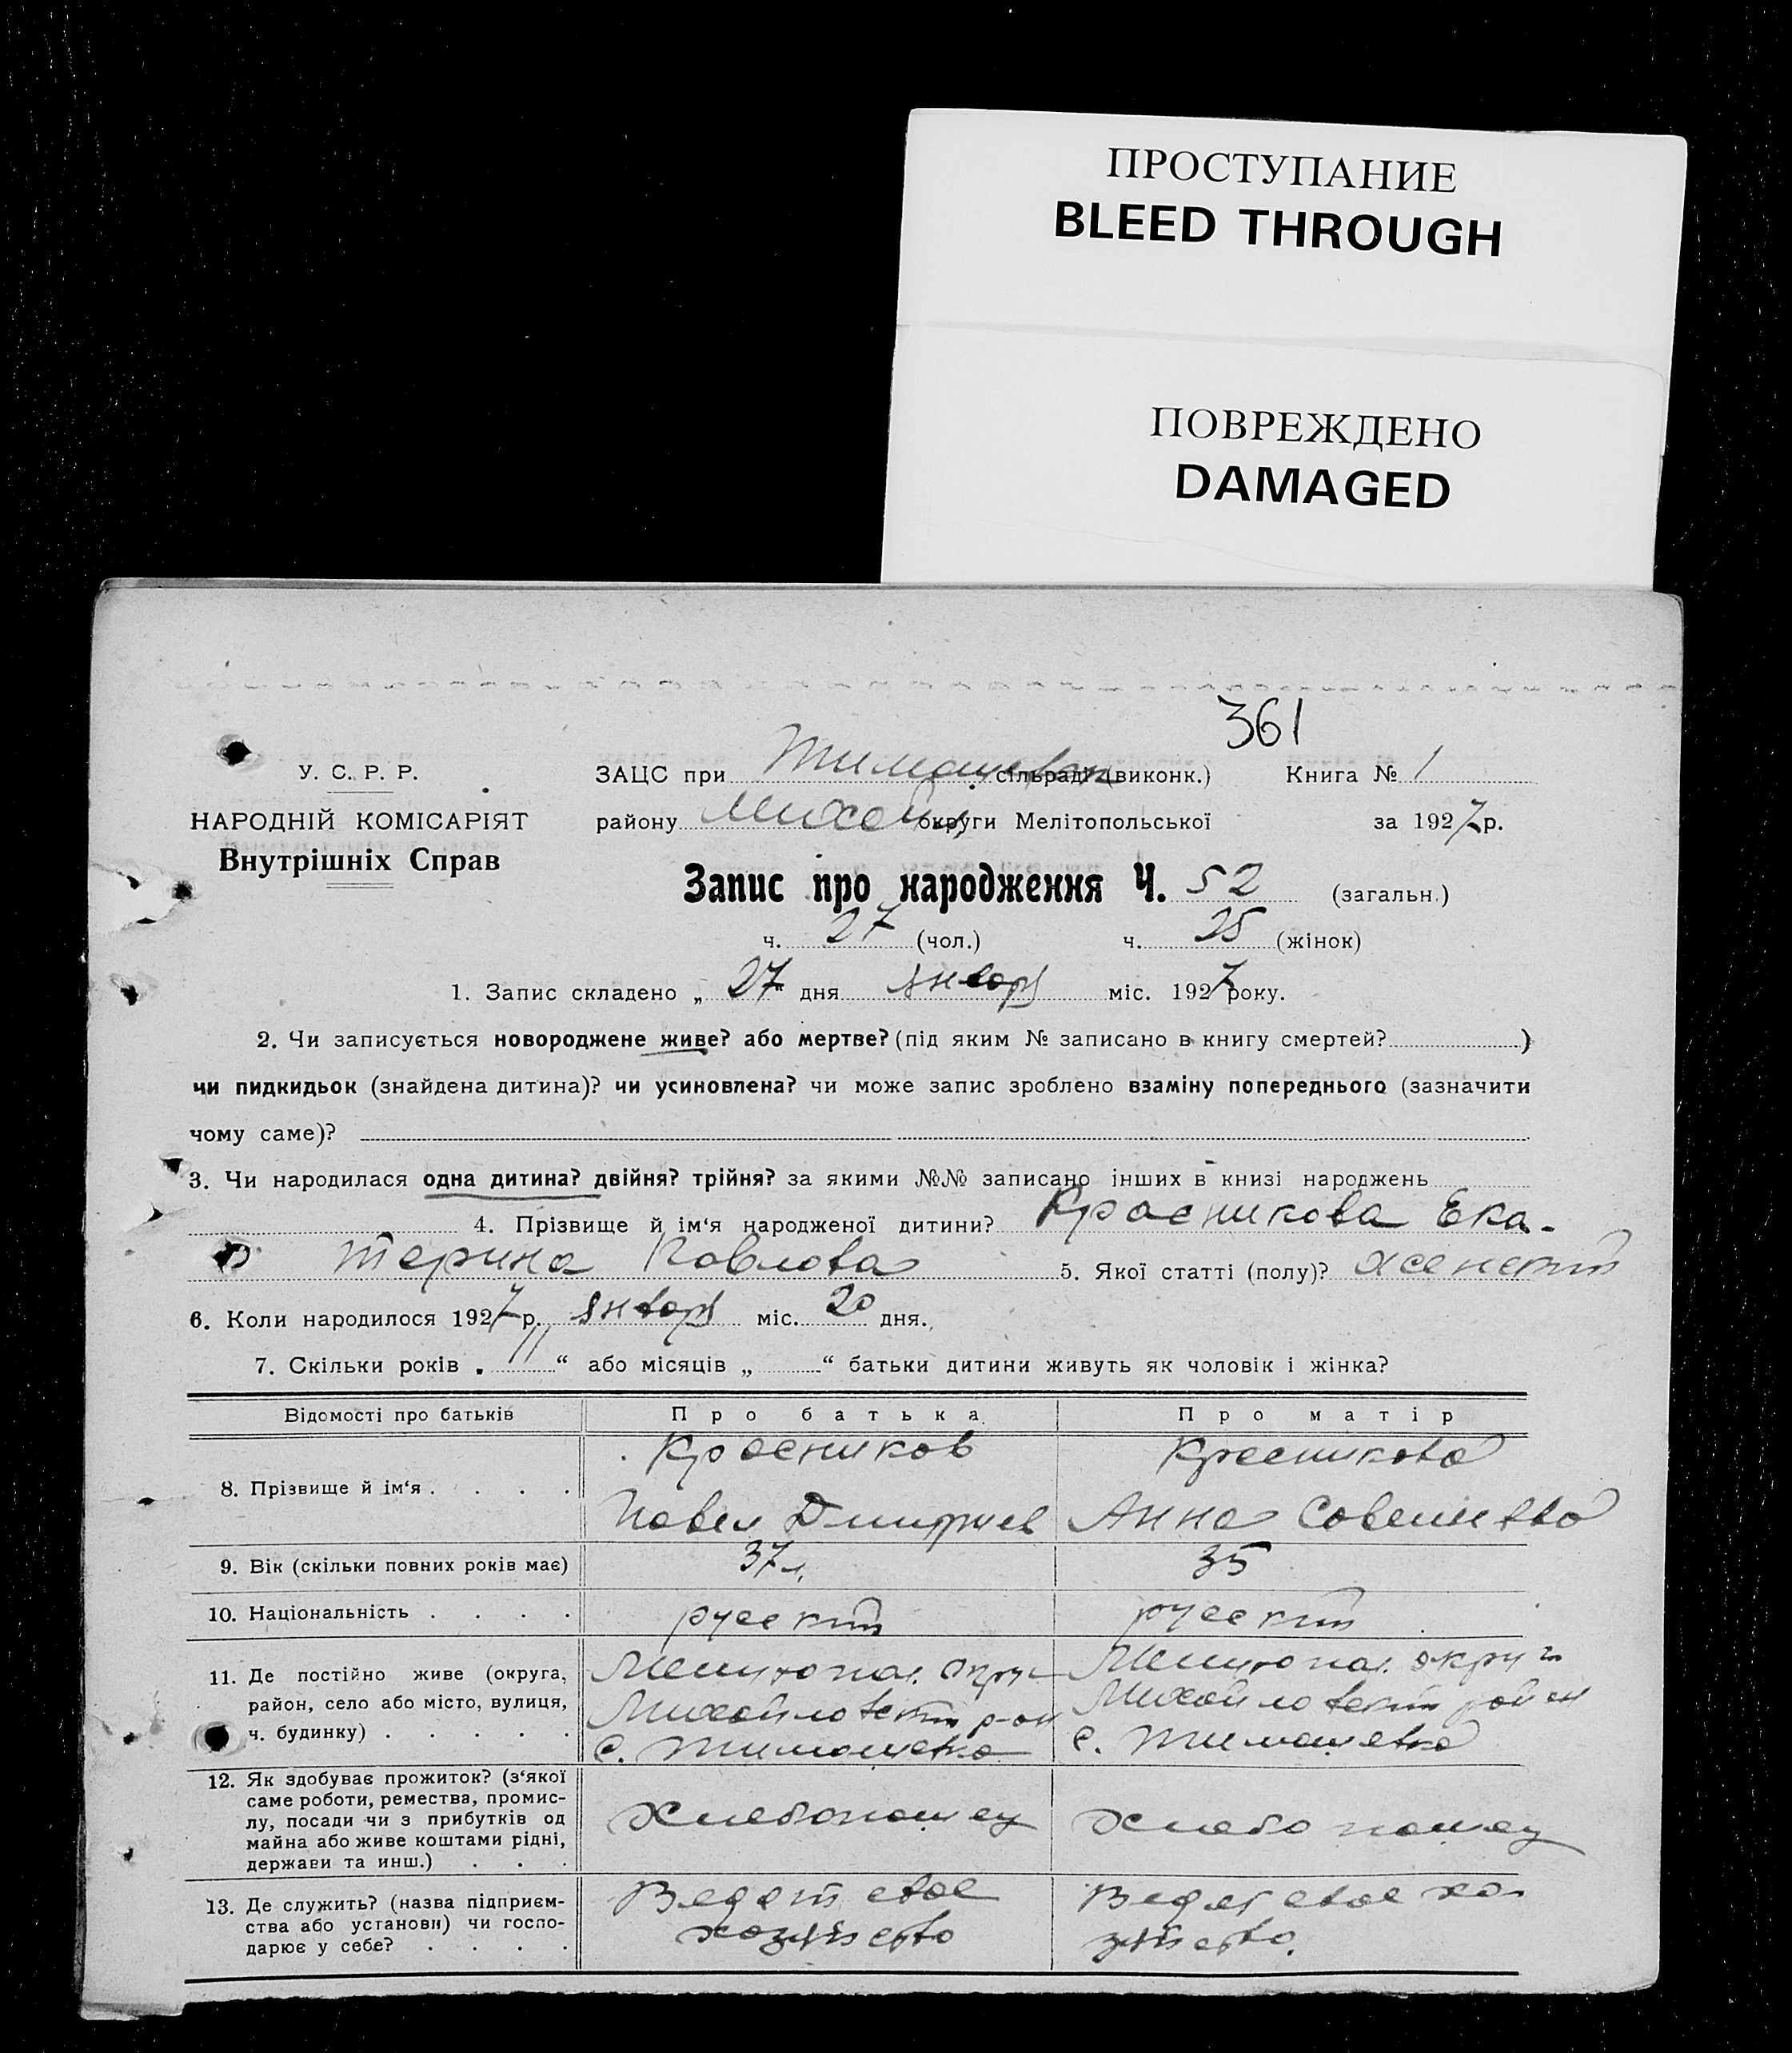 ПРОСТУПАНИЕ
BLEED THROUGH
ПОВРЕЖДЕНО
DAMAGED
361
У. С. Р. Р.
НАРОДНІЙ КОМІСАРІЯТ
Внутрішніх Справ
ЗАЦС при Тимашевск сільраді (виконк.) Книга № 1
району Михайл округи Мелітопольської за 1927 р.
Запис про народження Ч. 52 (загальн.)
ч. 27 (чол.) ч. 25 (жінок)
1. Запис складено „ 27 “ дня января міс. 1927 року.
2. Чи записується новороджене живе? або мертве? (під яким № записано в книгу смертей? )
чи пидкидьок (знайдена дитина)? чи усиновлена? чи може запис зроблено взаміну попереднього (зазначити
чому саме)?
3. Чи народилася одна дитина? двійня? трійня? за якими №№ записано інших в книзі народжень
4. Прізвище й ім‘я народженої дитини? Красникова Ека-
терина Павлова 5. Якої статті (полу)? женский
6. Коли народилося 1927 р. января міс. 20 дня.
7. Скільки років „ 11 “ або місяців „ “ батьки дитини живуть як чоловік і жінка?
Відомості про батьків Про батька Про матір
8. Прізвище й ім‘я . . . . Красников Павел Дмитриев Красникова Анна Савельевна
9. Вік (скільки повних років має) 37 л. 35
10. Національність . . . . русский русский
11. Де постійно живе (округа,
район, село або місто, вулиця,
ч. будинку) . . . . .
Мелитопол. округ
Михайловский р-он
с. Тимашевка
Мелитопол. округ
Михайловский район
с. Тимашевка
12. Як здобуває прожиток? (з‘якої
саме роботи, ремества, промис-
лу, посади чи з прибутків од
майна або живе коштами рідні,
держави та инш.) . . .
Хлебопашец Хлебопашец
13. Де служить? (назва підприєм-
ства або установи) чи госпо-
дарює у себе? . . . .
Ведет свое
хозяйство
Ведет свое хо-
зяйство.